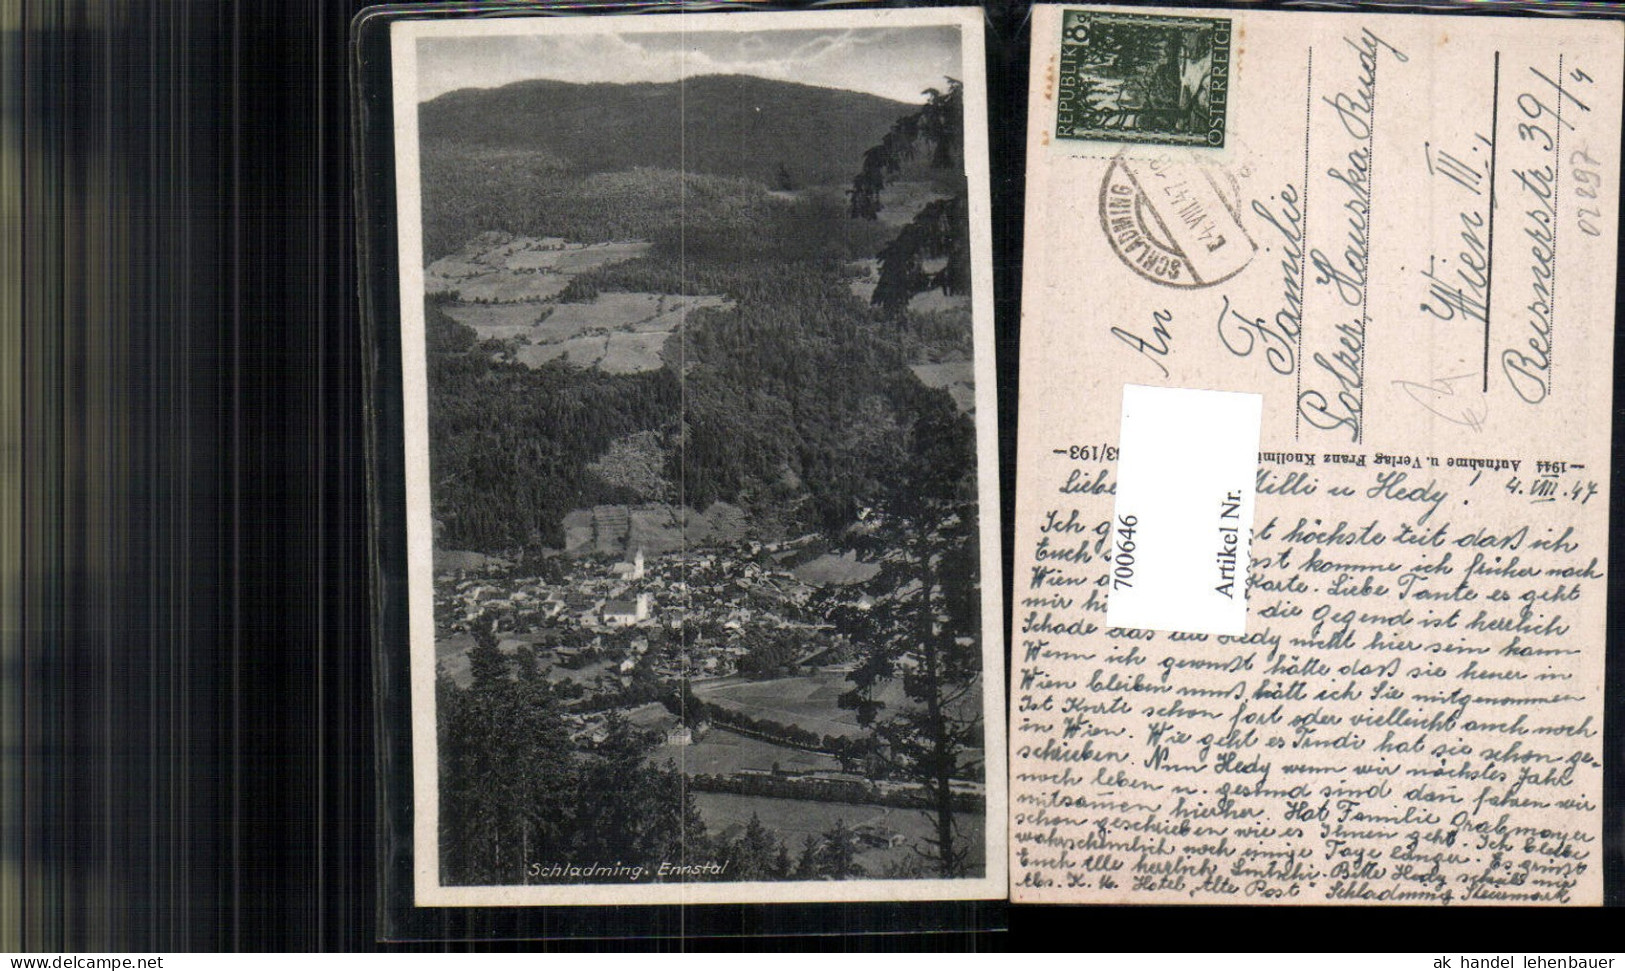 Schladming. Ennstal
REPUBLIK
8g
ÖSTERREICH
SCHLADMING
4.VIII.47
An
Familie
Polzer Hawska Rudy
Wien III.,
Reisnerstr 39/4
02297
—1944 Aufnahme u. Verlag Franz Knollmü
3/193—
700646
Artikel Nr.
4.VIII.47
Liebe Milli u Hedy!
Ich g st höchste Zeit daß ich
Euch nst komme ich früher nach
Wien Karte. Liebe Tante es geht
mir die Gegend ist herrlich
Schade das die Hedy nicht hier sein kann
Wenn ich gewußt hätte daß sie heuer in
Wien bleiben muß, hätt ich Sie mitgenommen
Ist Kurti schon fort oder vielleicht auch noch
in Wien. Wie geht es Trudi hat sie schon ge-
schrieben. Nun Hedy wenn wir nächstes Jahr
noch leben u. gesund sind dañ fahren wir
mitsam̄en hierher. Hat Familie Grabmayer
schon geschrieben wie es Ihnen geht. Ich bleibe
wahrscheinlich noch einige Tage länger. Es grüßt
Euch alle herzlich Bitte Hedy schreib mir
Abs. Hotel "Alte Post" Schladming Steiermark
ak handel lehenbauer